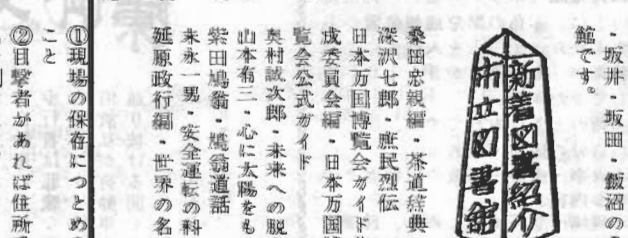 ・坂井・坂田・飯沼の
館です。
新着図書紹介
市立図書館
桑田忠親編・茶道辞典
深沢七郎・庶民烈伝
日本万国博覧会ガイド
成委員会編・日本万国
覧会公式ガイド
奥村誠次郎・未来への脱
山本有三・心に太陽をも
柴田鳩翁・鳩翁道話
末永一男・安全運転の科
延原政行編・世界の名
①現場の保存につとめ
こと
②目撃者があれば住所